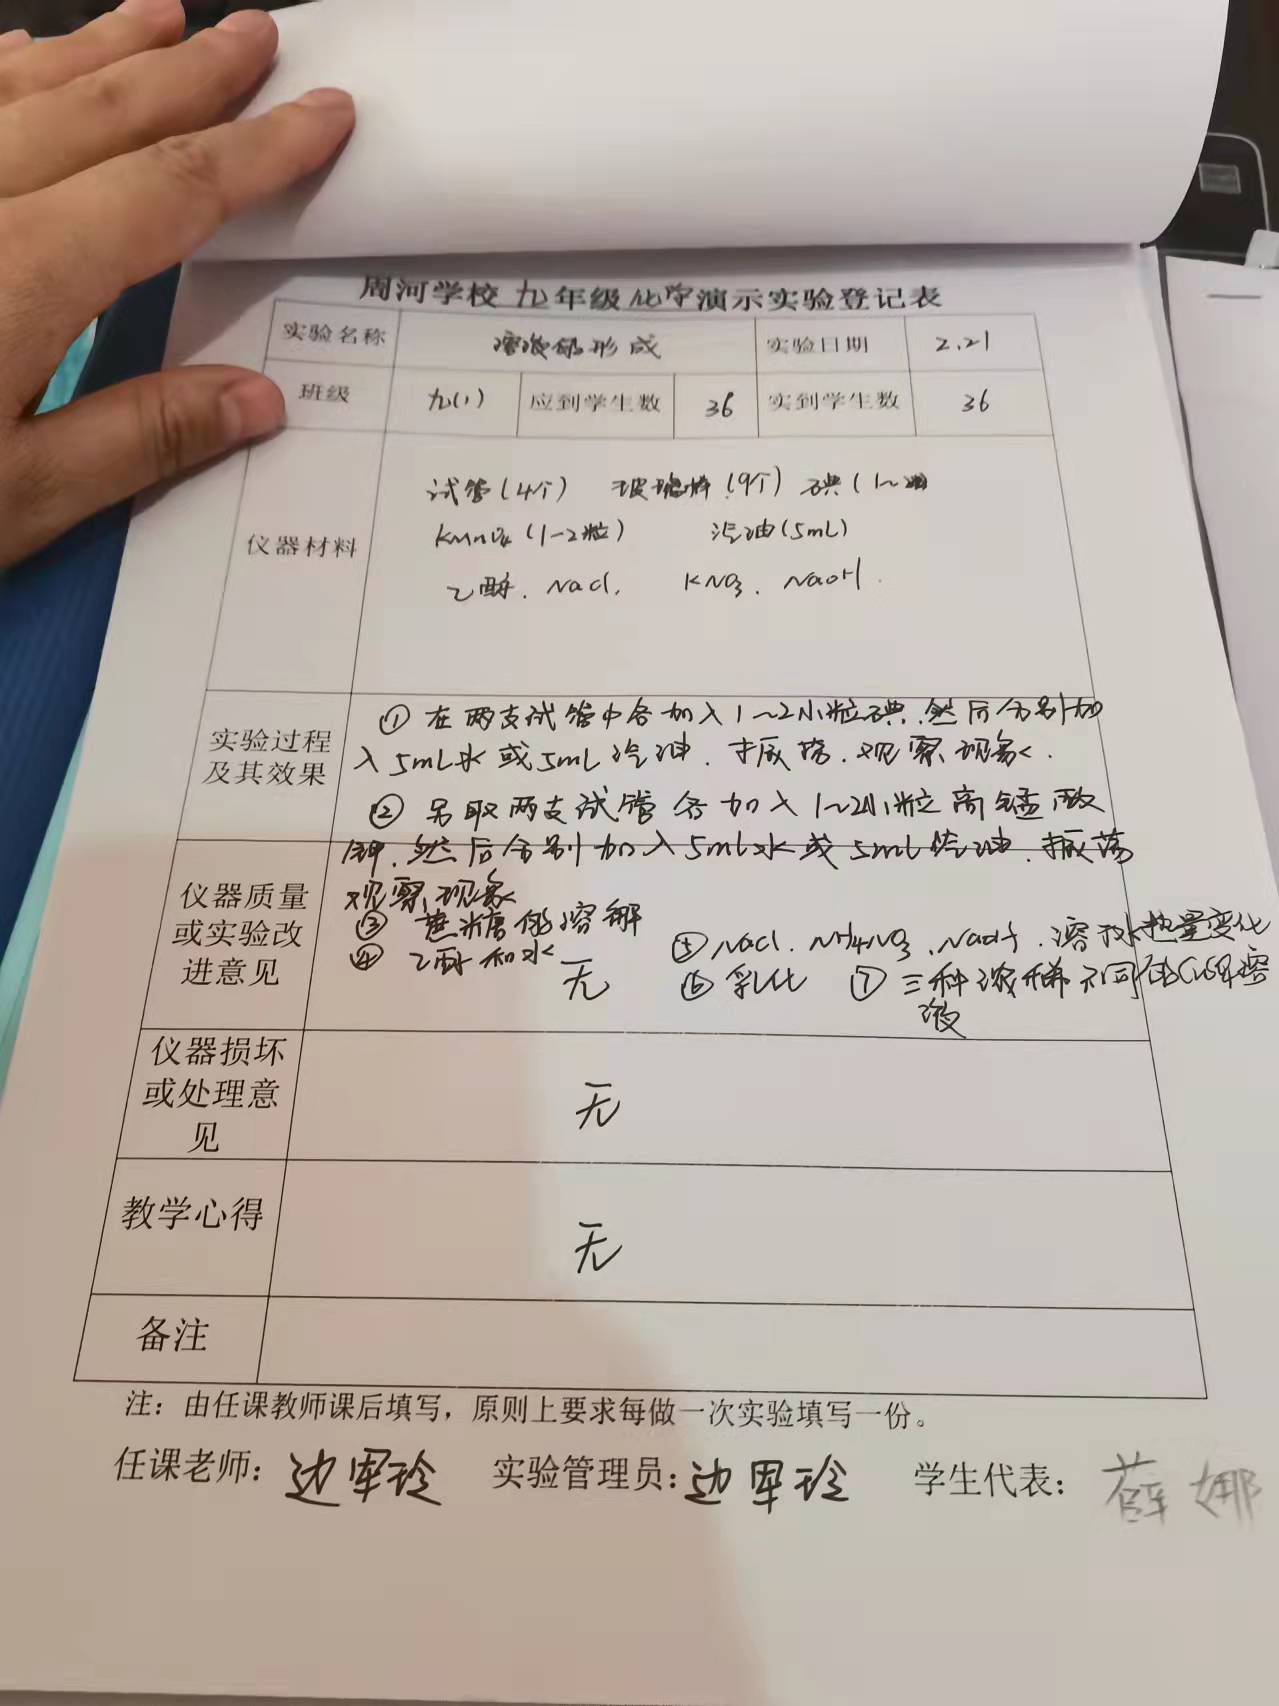 周河学校 九年级化学演示实验登记表
实验名称 溶液的形成 实验日期 2.21
班级 九(1) 应到学生数 36 实到学生数 36
仪器材料
试管(4个) 玻璃棒(9个) 碘(1~2粒
KMnO4(1-2粒) 汽油(5mL)
乙醇. NaCl, KNO3. NaOH.
实验过程及其效果
①在两支试管中各加入1~2小粒碘.然后分别加
入5mL水或5mL汽油.振荡.观察现象.
②另取两支试管各加入1~2小粒高锰酸
钾.然后分别加入5mL水或5mL汽油.振荡
观察现象
③蔗糖的溶解
④乙醇和水
⑤NaCl. NH4NO3. NaOH.溶于水热量变化
⑥乳化 ⑦三种浓稀不同的CuSO4溶
液
仪器质量
或实验改
进意见
无
仪器损坏
或处理意
见
无
教学心得
无
备注
注：由任课教师课后填写，原则上要求每做一次实验填写一份。
任课老师：边军玲 实验管理员：边军玲 学生代表：薛娜